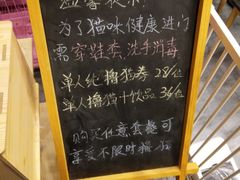 为了猫咪健康进门
需穿鞋套、洗手消毒
单人纯撸猫券 28/位
单人撸猫+饮品 36/位
购买任意套餐可
享受不限时撸